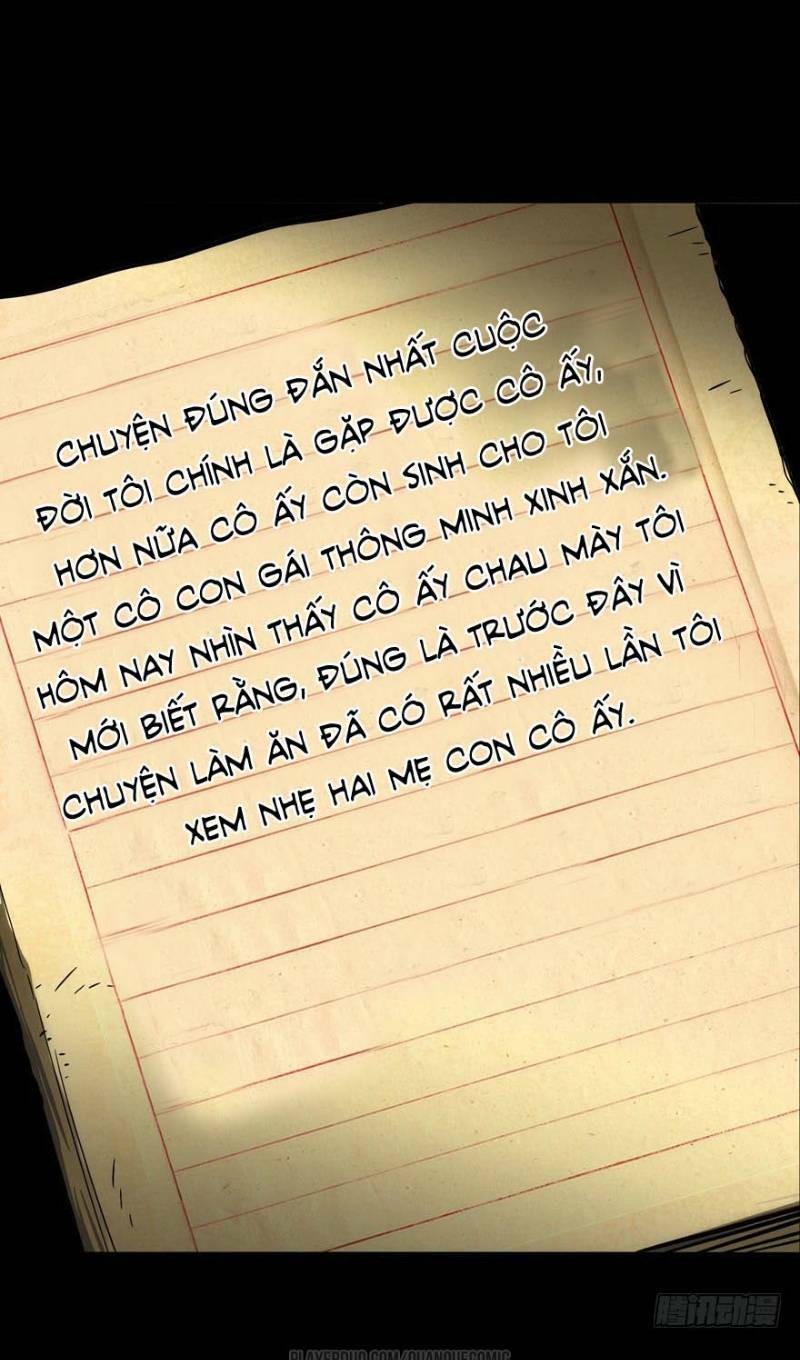 CHUYỆN ĐÚNG ĐẮN NHẤT CUỘC
ĐỜI TÔI CHÍNH LÀ GẶP ĐƯỢC CÔ ẤY,
HƠN NỮA CÔ ẤY CÒN SINH CHO TÔI
MỘT CÔ CON GÁI THÔNG MINH XINH XẮN.
HÔM NAY NHÌN THẤY CÔ ẤY CHAU MÀY TÔI
MỚI BIẾT RẰNG, ĐÚNG LÀ TRƯỚC ĐÂY VÌ
CHUYỆN LÀM ĂN ĐÃ CÓ RẤT NHIỀU LẦN TÔI
XEM NHẸ HAI MẸ CON CÔ ẤY.
腾讯动漫
PLAYERDUO.COM/QUANQUECOMIC